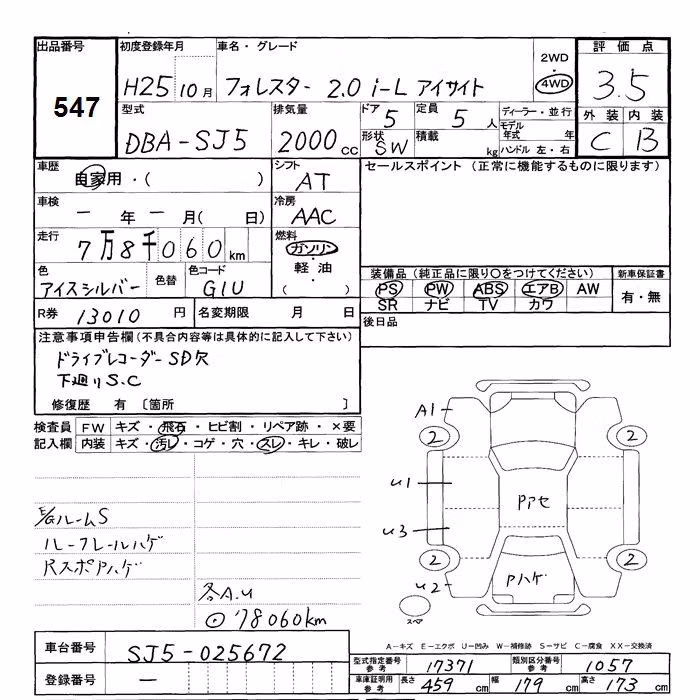 出品番号 初度登録年月 車名・グレード 2WD 評価点
547 H25 10月 フォレスター 2.0 i-L アイサイト 4WD 3.5
型式 排気量 ドア 5 定員 5 人 ディーラー・並行 外装 内装
DBA-SJ5 2000 cc 形状 SW 積載 kg モデル年式 年 C B
ハンドル 左・右
車歴 自家用・( ) シフト AT セールスポイント (正常に機能するものに限ります)
車検 ー 年 ー 月( 日) 冷房 AAC
走行 7万8千060 km 燃料 ガソリン・軽油・( )
色 アイスシルバー 色替 色コード G1U
装備品 (純正品に限り○をつけてください) 新車保証書
PS PW ABS エアB AW 有・無
SR ナビ TV カワ
R券 13010 円 名変期限 月 日 後日品
注意事項申告欄(不具合内容等は具体的に記入して下さい)
ドライブレコーダーSD欠
下廻りS.C
修復歴 有 〔箇所 〕
検査員 FW キズ・飛石・ヒビ割・リペア跡・×要
記入欄 内装 キズ・汚レ・コゲ・穴・スレ・キレ・破レ
E/GルームS
ルーフレールハゲ
RスポPハゲ
各A.u
⊙'78060km
A1
2 2
u1
Pアセ
u3
2 2
u2 Pハゲ
スペア
A−キズ E−エクボ U−凹み W−補修跡 S−サビ C−腐食 XX−交換済
車台番号 SJ5-025672 型式指定番号 参考 17371 類別区分番号 参考 1057
登録番号 ー 車庫証明用 参考 長さ 459 cm 幅 179 cm 高さ 173 cm